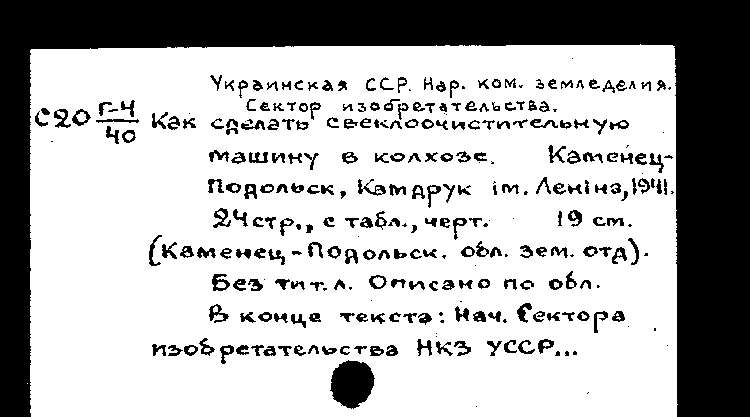 Украинская ССР. Нар. ком. земледелия.
Сектор изобретательства.
С20 Г-4/40 Как сделать свеклоочистительную
машину в колхозе. Каменец-
Подольск, Камдрук ім. Леніна, 1941.
24 стр., с табл., черт. 19 см.
(Каменец-Подольск. обл. зем. отд).
Без тит. л. Описано по обл.
В конце текста: Нач. Сектора
изобретательства НКЗ УССР...